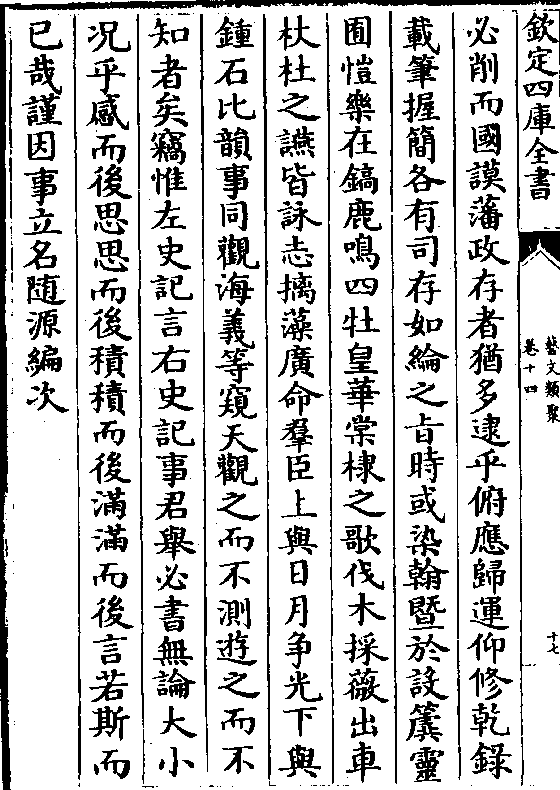 欽定四庫全書
藝文類聚
卷十四
十七
必削而國謨藩政存者猶多逮乎俯應歸運仰修乾錄
載筆握簡各有司存如綸之旨時或染翰暨於設簴靈
囿愷樂在鎬鹿鳴四牡皇華棠棣之歌伐木採薇出車
杕杜之讌皆詠志摛藻廣命羣臣上與日月争光下與
鍾石比韻事同觀海義等窺天觀之而不測遊之而不
知者矣竊惟左史記言右史記事君舉必書無論大小
况乎感而後思思而後積積而後滿滿而後言若斯而
已哉謹因事立名随源編次